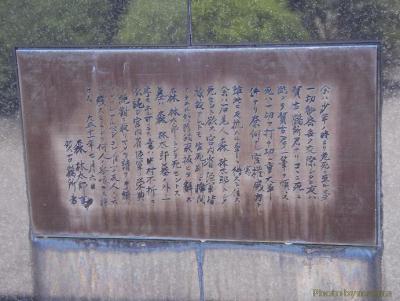 余ハ少年ノ時ヨリ老死ニ至ルマデ
一切秘密無ク交際シタル友ハ
賀古鶴所君ナリコヽニ死ニ
臨ンテ賀古君ノ一筆ヲ煩ハス
死ハ一切ヲ打チ切ル重大事
件ナリ奈何ナル官憲威力ト
雖此ニ反抗スル事ヲ得スト信ス
余ハ石見人森林太郎トシテ
死セント欲ス宮内省陸軍皆
縁故アレドモ生死別ルヽ瞬間
アラユル外形的取扱ヒヲ辭ス
森林太郎トシテ死セントス
墓ハ森林太郎墓ノ外一
字モホル可ラス書ハ中村不折ニ
依託シ宮内省陸軍ノ榮典
ハ絶對ニ取リヤメヲ請フ手續ハ
ソレゾレアルベシコレ唯一ノ友人ニ云ヒ
殘スモノニシテ何人ノ容喙ヲモ許
サス 大正十一年七月六日
森林太郎言
賀古鶴所書